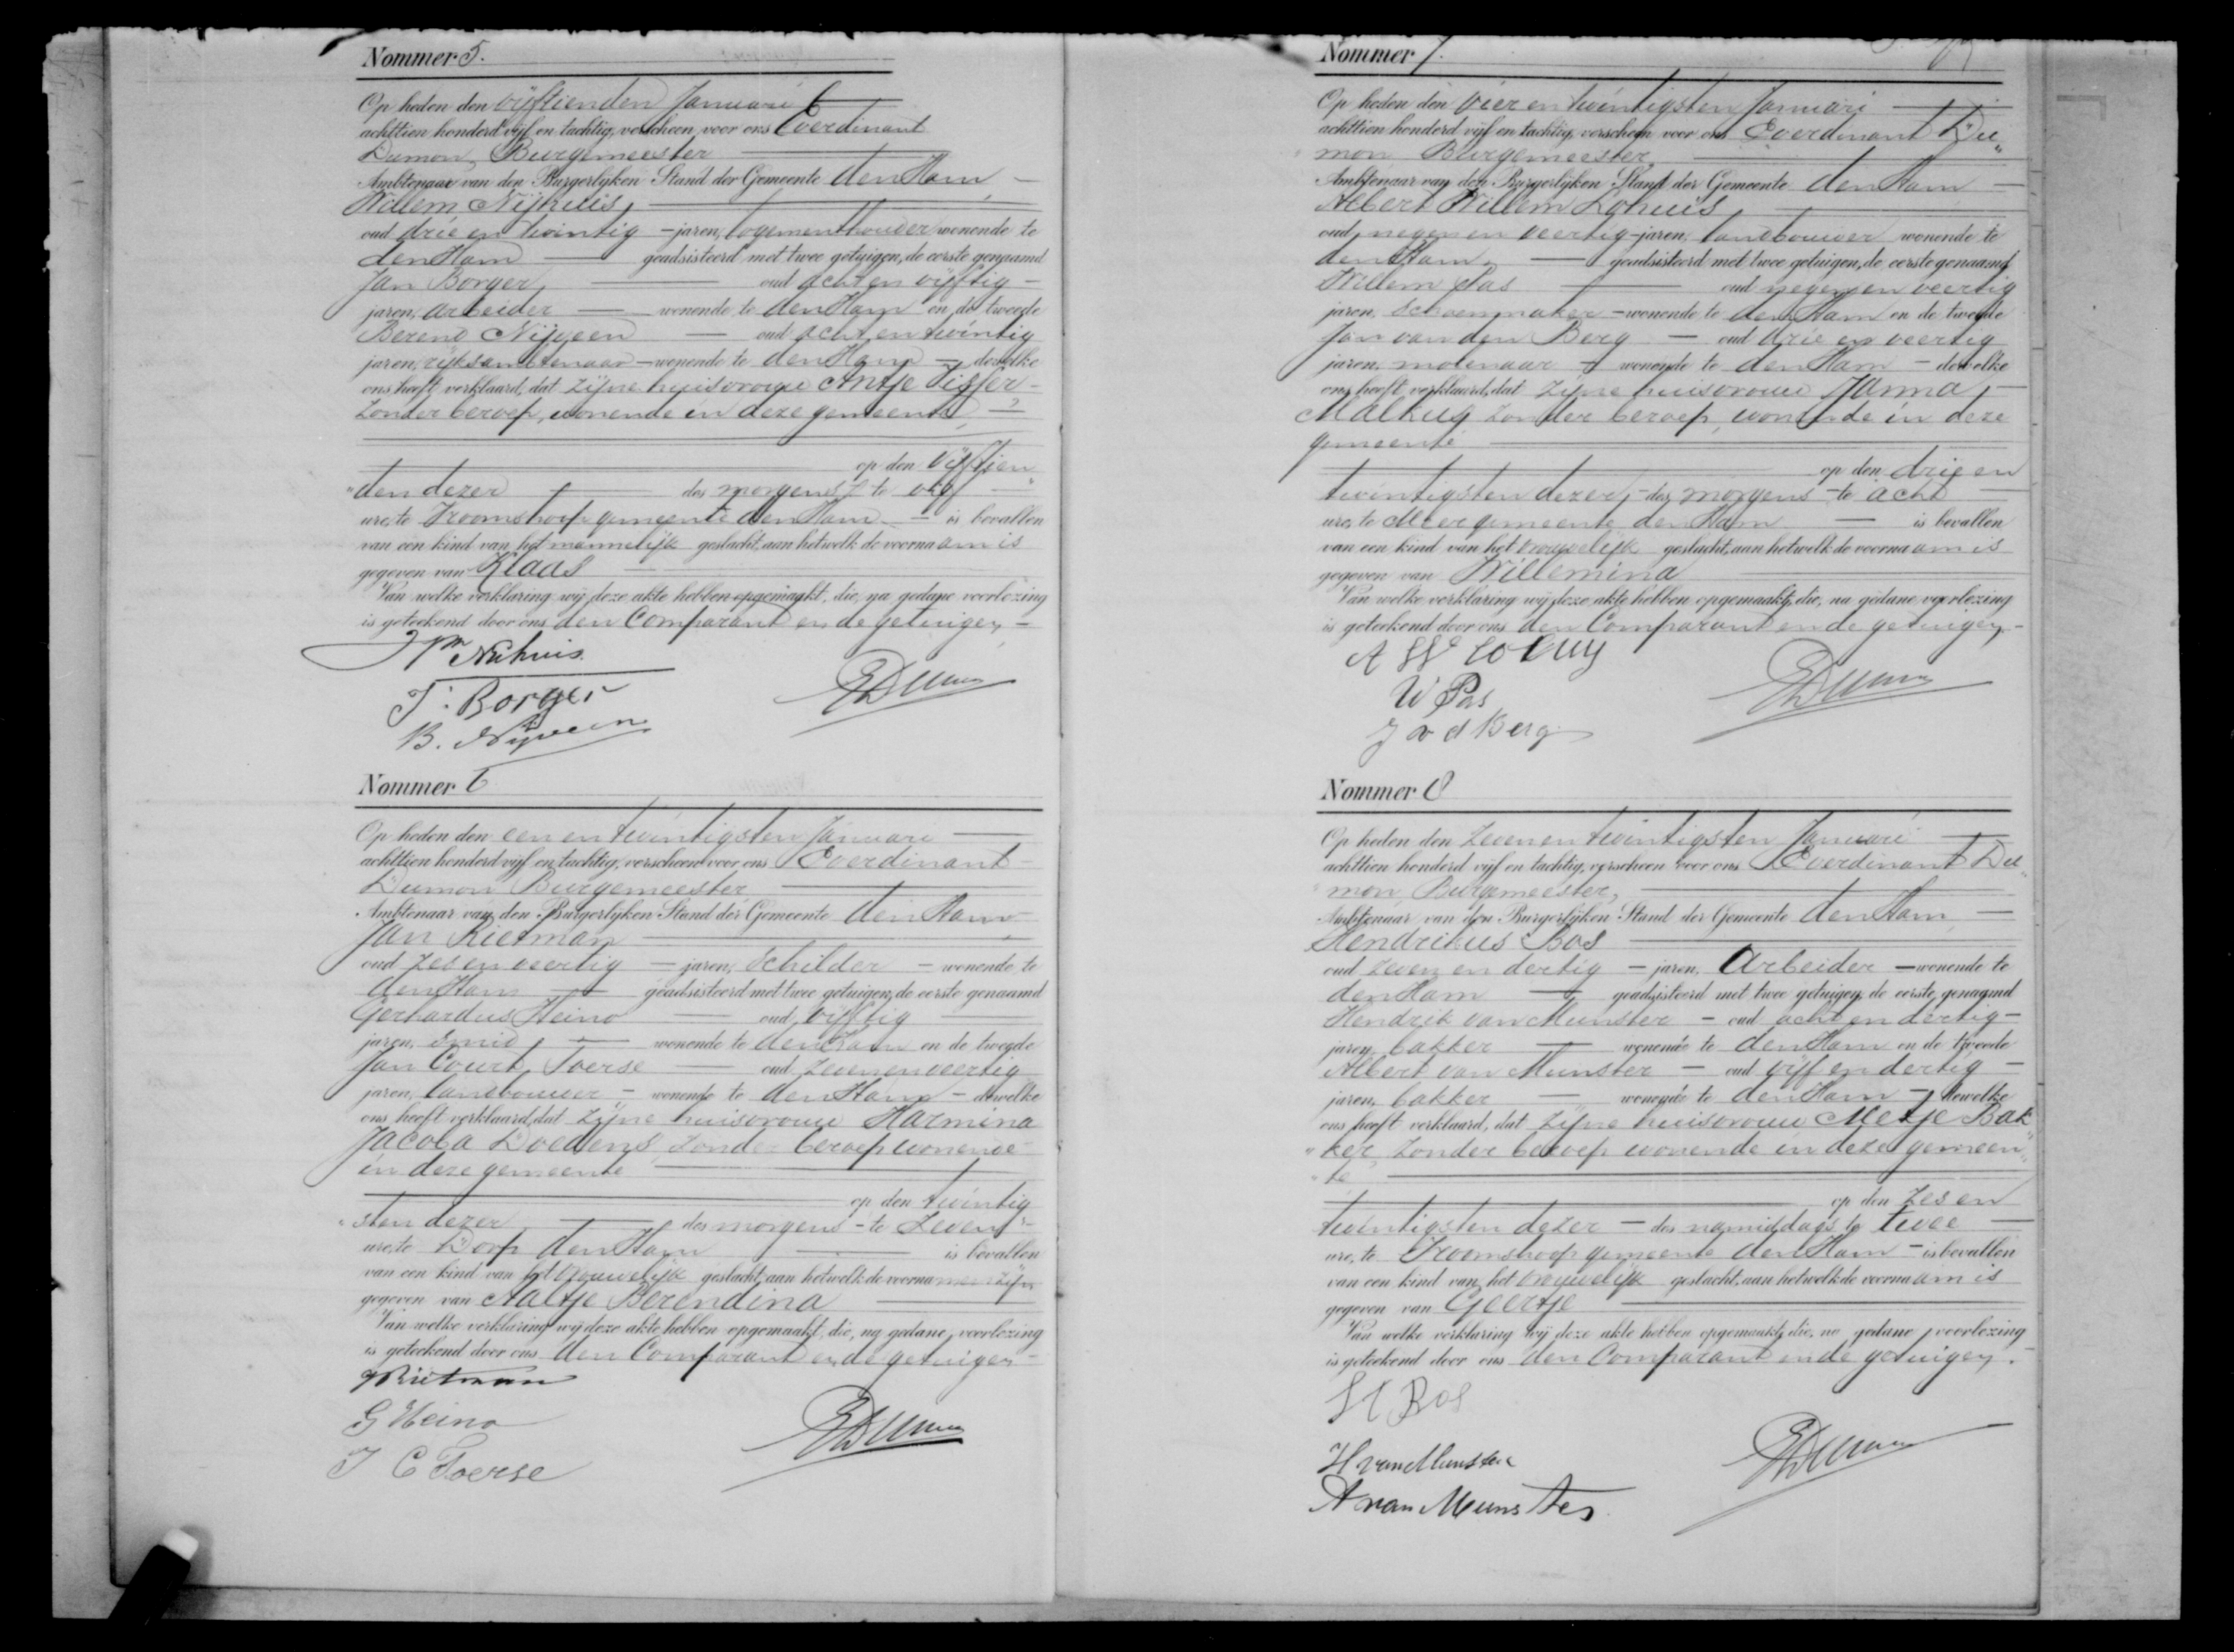 Nommer 5.
Op heden den vijftienden Januari
achttien honderd vijf en tachtig, verscheen voor ons Everdinant
Dumon, Burgemeester
Ambtenaar van den Burgerlijken Stand der Gemeente den Ham
Willem Nijhuis,
oud drie en twintig jaren, logementhouder wonende te
den Ham geadsisteerd met twee getuigen, de eerste genaamd
Jan Borger, oud acht en vijftig
jaren, arbeider wonende te den Ham en de tweede
Berend Nijveen oud acht en twintig
jaren, rijksambtenaar wonende te den Ham dewelke
ons heeft verklaard, dat zijne huisvrouw Antje
zonder beroep, wonende in deze gemeente,
op den vijftien
"den dezer des morgens te vijf
ure, te Vroomshoop gemeente den Ham is bevallen
van een kind van het mannelijk geslacht, aan hetwelk de voornaam is
gegeven van Klaas
Van welke verklaring wij deze akte hebben opgemaakt, die, na gedane voorlezing
is geteekend door ons den Comparant en de getuigen
Wm Nijhuis
J. Borger
B. Nijveen
EDumon
Nommer 6
Op heden den een en twintigsten Januari
achttien honderd vijf en tachtig, verscheen voor ons Everdinant
Dumon Burgemeester
Ambtenaar van den Burgerlijken Stand der Gemeente den Ham
Jan Rietman
oud zes en veertig jaren, Schilder wonende te
den Ham geadsisteerd met twee getuigen, de eerste genaamd
Gerhardus Heino oud vijftig
jaren, smid, wonende te den Ham en de tweede
Jan Court Toerse oud zeven en veertig
jaren, landbouwer wonende te den Ham dewelke
ons heeft verklaard, dat zijne huisvrouw Harmina
Jacoba Doedens zonder beroep wonende
in deze gemeente
op den twintig
"sten dezer des morgens te zeven
ure, te Dorp den Ham is bevallen
van een kind van het vrouwelijk geslacht, aan hetwelk de voornamen zijn
gegeven van Aaltje Berendina
Van welke verklaring wij deze akte hebben opgemaakt, die, na gedane voorlezing
is geteekend door ons den Comparant en de getuigen
J Rietman
G Heino
J C Toerse
EDumon
Nommer 7.
Op heden den vier en twintigsten Januari
achttien honderd vijf en tachtig, verscheen voor ons Everdinant Du"
mon, Burgemeester,
Ambtenaar van den Burgerlijken Stand der Gemeente den Ham
Albert Willem Lohuis
oud negen en veertig jaren, landbouwer wonende te
den Ham, geadsisteerd met twee getuigen, de eerste genaamd
Willem Pas oud negen en veertig
jaren, schoenmaker wonende te den Ham en de tweede
Jan van den Berg oud drie en veertig
jaren, molenaar wonende te den Ham dewelke
ons heeft verklaard, dat zijne huisvrouw Janna
zonder beroep, wonende in deze
gemeente
op den drie en
twintigsten dezer, des morgens te acht
ure, te Meer gemeente den Ham is bevallen
van een kind van het vrouwelijk geslacht, aan hetwelk de voornaam is
gegeven van Willemina
Van welke verklaring wij deze akte hebben opgemaakt, die, na gedane voorlezing
is geteekend door ons den Comparant en de getuigen
A W
W Pas
J v d Berg
EDumon
Nommer 8
Op heden den zeven en twintigsten Januari
achttien honderd vijf en tachtig, verscheen voor ons Everdinant Du"
mon, Burgemeester,
Ambtenaar van den Burgerlijken Stand der Gemeente den Ham
Hendrikus Bos
oud zeven en dertig jaren, Arbeider wonende te
den Ham geadsisteerd met twee getuigen, de eerste genaamd
Hendrik van Munster oud acht en dertig
jaren, bakker wonende te den Ham en de tweede
Albert van Munster oud vijf en dertig
jaren, bakker wonende te den Ham dewelke
ons heeft verklaard, dat zijne huisvrouw Metje Bak
"ker, zonder beroep wonende in deze gemeen"
"te
op den zes en
twintigsten dezer des namiddags te twee
ure, te Vroomshoop gemeente den Ham is bevallen
van een kind van het vrouwelijk geslacht, aan hetwelk de voornaam is
gegeven van Geertje
Van welke verklaring wij deze akte hebben opgemaakt, die, na gedane voorlezing
is geteekend door ons den Comparant en de getuigen.
H Bos
H van Munster
A van Munster
EDumon